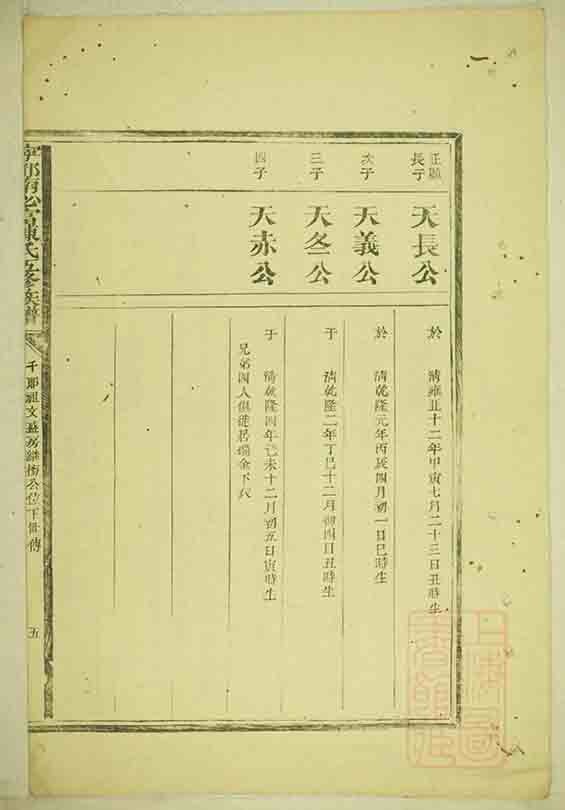 正顯
長子
天長公
於 清雍正十二年甲寅七月二十三日丑時生
次子
天義公
於 清乾隆元年丙辰四月初一日巳時生
三子
天冬公
于 清乾隆二年丁巳十二月初四日丑時生
四子
天赤公
于 清乾隆四年己未十二月初五日寅時生
兄弟四人俱徙居瑞金下六
氏五修族譜
千郎祖文益房繼梅公位下世傳
五